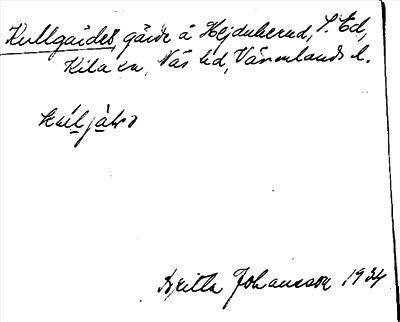 Kullgärdet, gärde å Hejdeberud, S. Ed,
Kila sn, Näs hd, Värmlands l.
Britta Johansson 1934